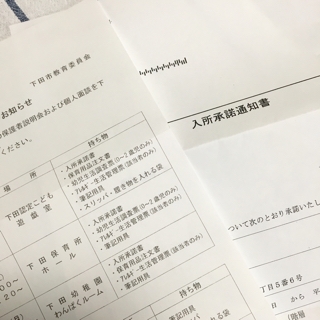 下田市教育委員会
お知らせ
保護者説明会および個人面談を下
ください。
場 所
持ち物
下田認定こども
遊戯室
・入所承諾書
・保育用品注文書
・幼児生活調査票(0～1歳児のみ)
・ｱﾚﾙｷﾞｰ生活管理票(該当者のみ)
・筆記用具
・スリッパ・履き物を入れる袋
下 田 保 育 所
ホ ー ル
・入所承諾書
・幼児生活調査票(0～2歳児のみ)
・ｱﾚﾙｷﾞｰ生活管理票(該当者のみ)
・筆記用具
下 田 幼 稚 園
わんぱくルーム
・入所承諾書
・保育用品注文書
・ｱﾚﾙｷﾞｰ生活管理票(該当者のみ)
・筆記用具
入所承諾通知書
ついて次のとおり承諾いたし
丁目5番6号
日 から 平
(階層